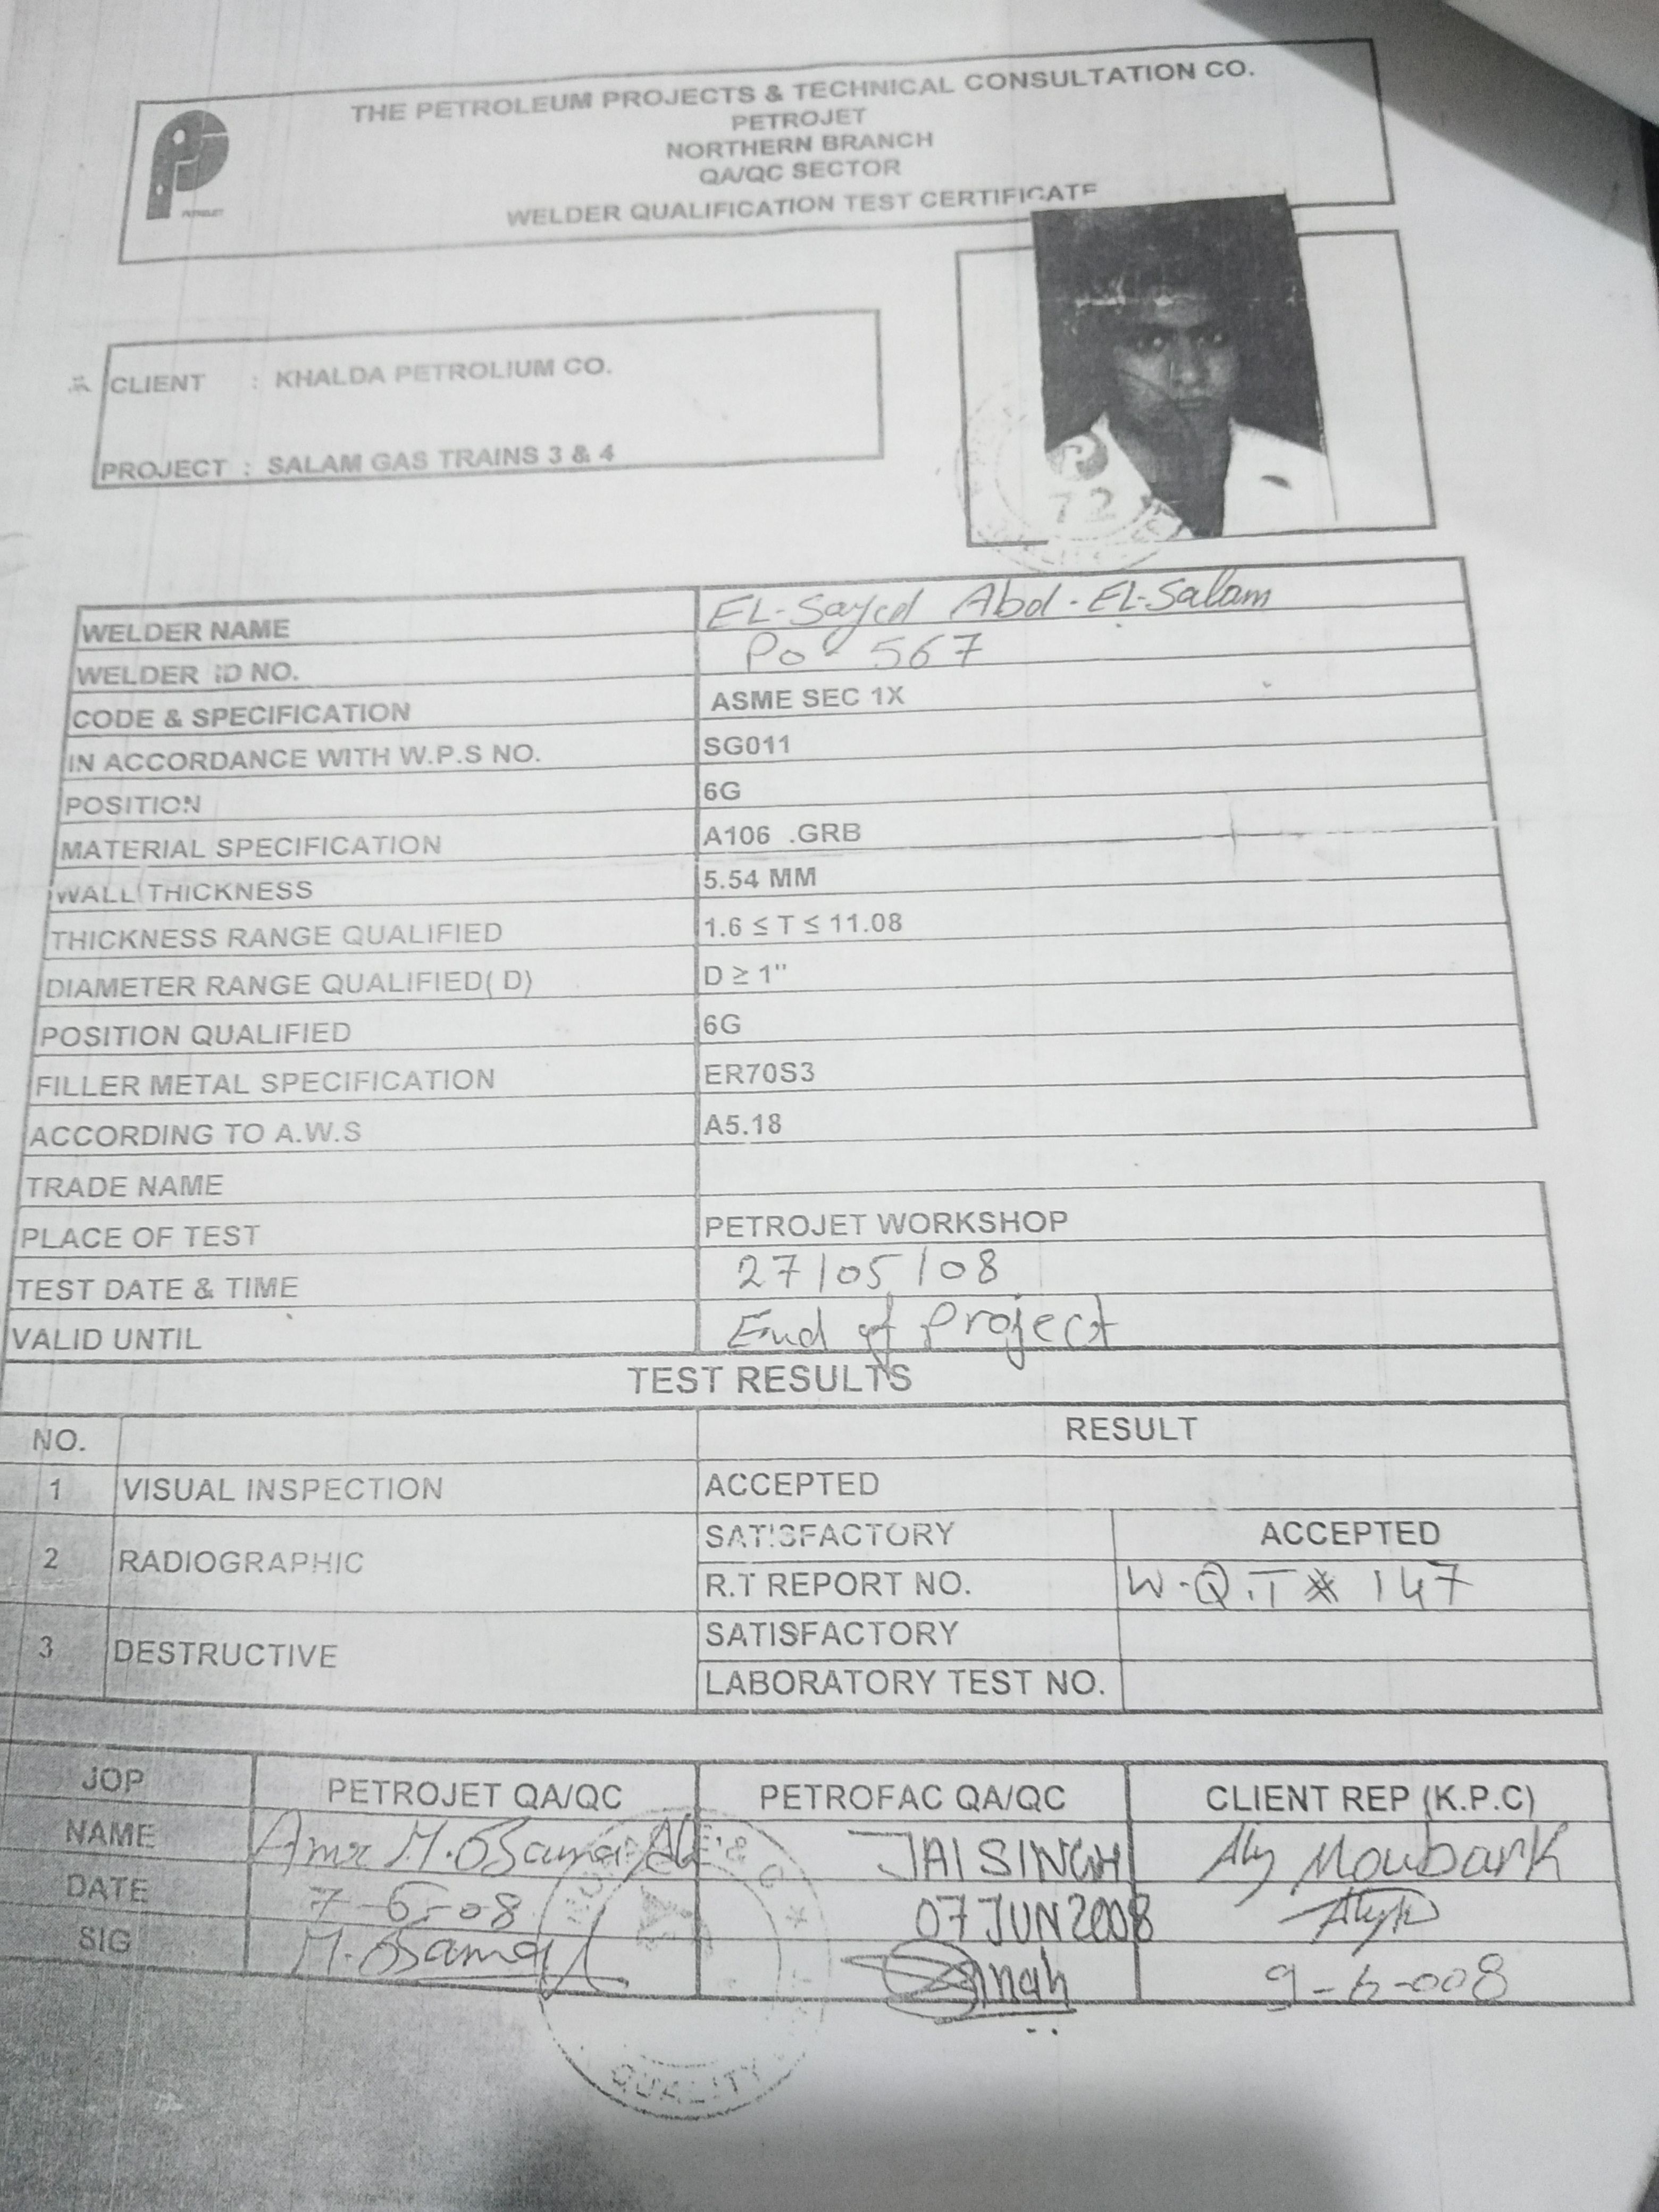 THE PETROLEUM PROJECTS & TECHNICAL CONSULTATION CO.
PETROJET
NORTHERN BRANCH
QA/QC SECTOR
WELDER QUALIFICATION TEST CERTIFICATE
PETROJET
CLIENT : KHALDA PETROLIUM CO.
PROJECT : SALAM GAS TRAINS 3 & 4
72
WELDER NAME EL-Sayed Abd-EL-Salam
WELDER ID NO. Po-567
CODE & SPECIFICATION ASME SEC 1X
IN ACCORDANCE WITH W.P.S NO. SG011
POSITION 6G
MATERIAL SPECIFICATION A106 .GRB
WALL THICKNESS 5.54 MM
THICKNESS RANGE QUALIFIED 1.6 ≤ T ≤ 11.08
DIAMETER RANGE QUALIFIED( D) D ≥ 1"
POSITION QUALIFIED 6G
FILLER METAL SPECIFICATION ER70S3
ACCORDING TO A.W.S A5.18
TRADE NAME
PLACE OF TEST PETROJET WORKSHOP
TEST DATE & TIME 27/05/08
VALID UNTIL End of Project
TEST RESULTS
NO. RESULT
1 VISUAL INSPECTION ACCEPTED
2 RADIOGRAPHIC SATISFACTORY ACCEPTED
R.T REPORT NO. W.Q.T # 147
3 DESTRUCTIVE SATISFACTORY
LABORATORY TEST NO.
JOP PETROJET QA/QC PETROFAC QA/QC CLIENT REP (K.P.C)
NAME Amr M.OSama JAI SINGH Aly Moubark
DATE 7-6-08 07 JUN 2008
SIG M.OSama Singh 9-6-008
QUALITY